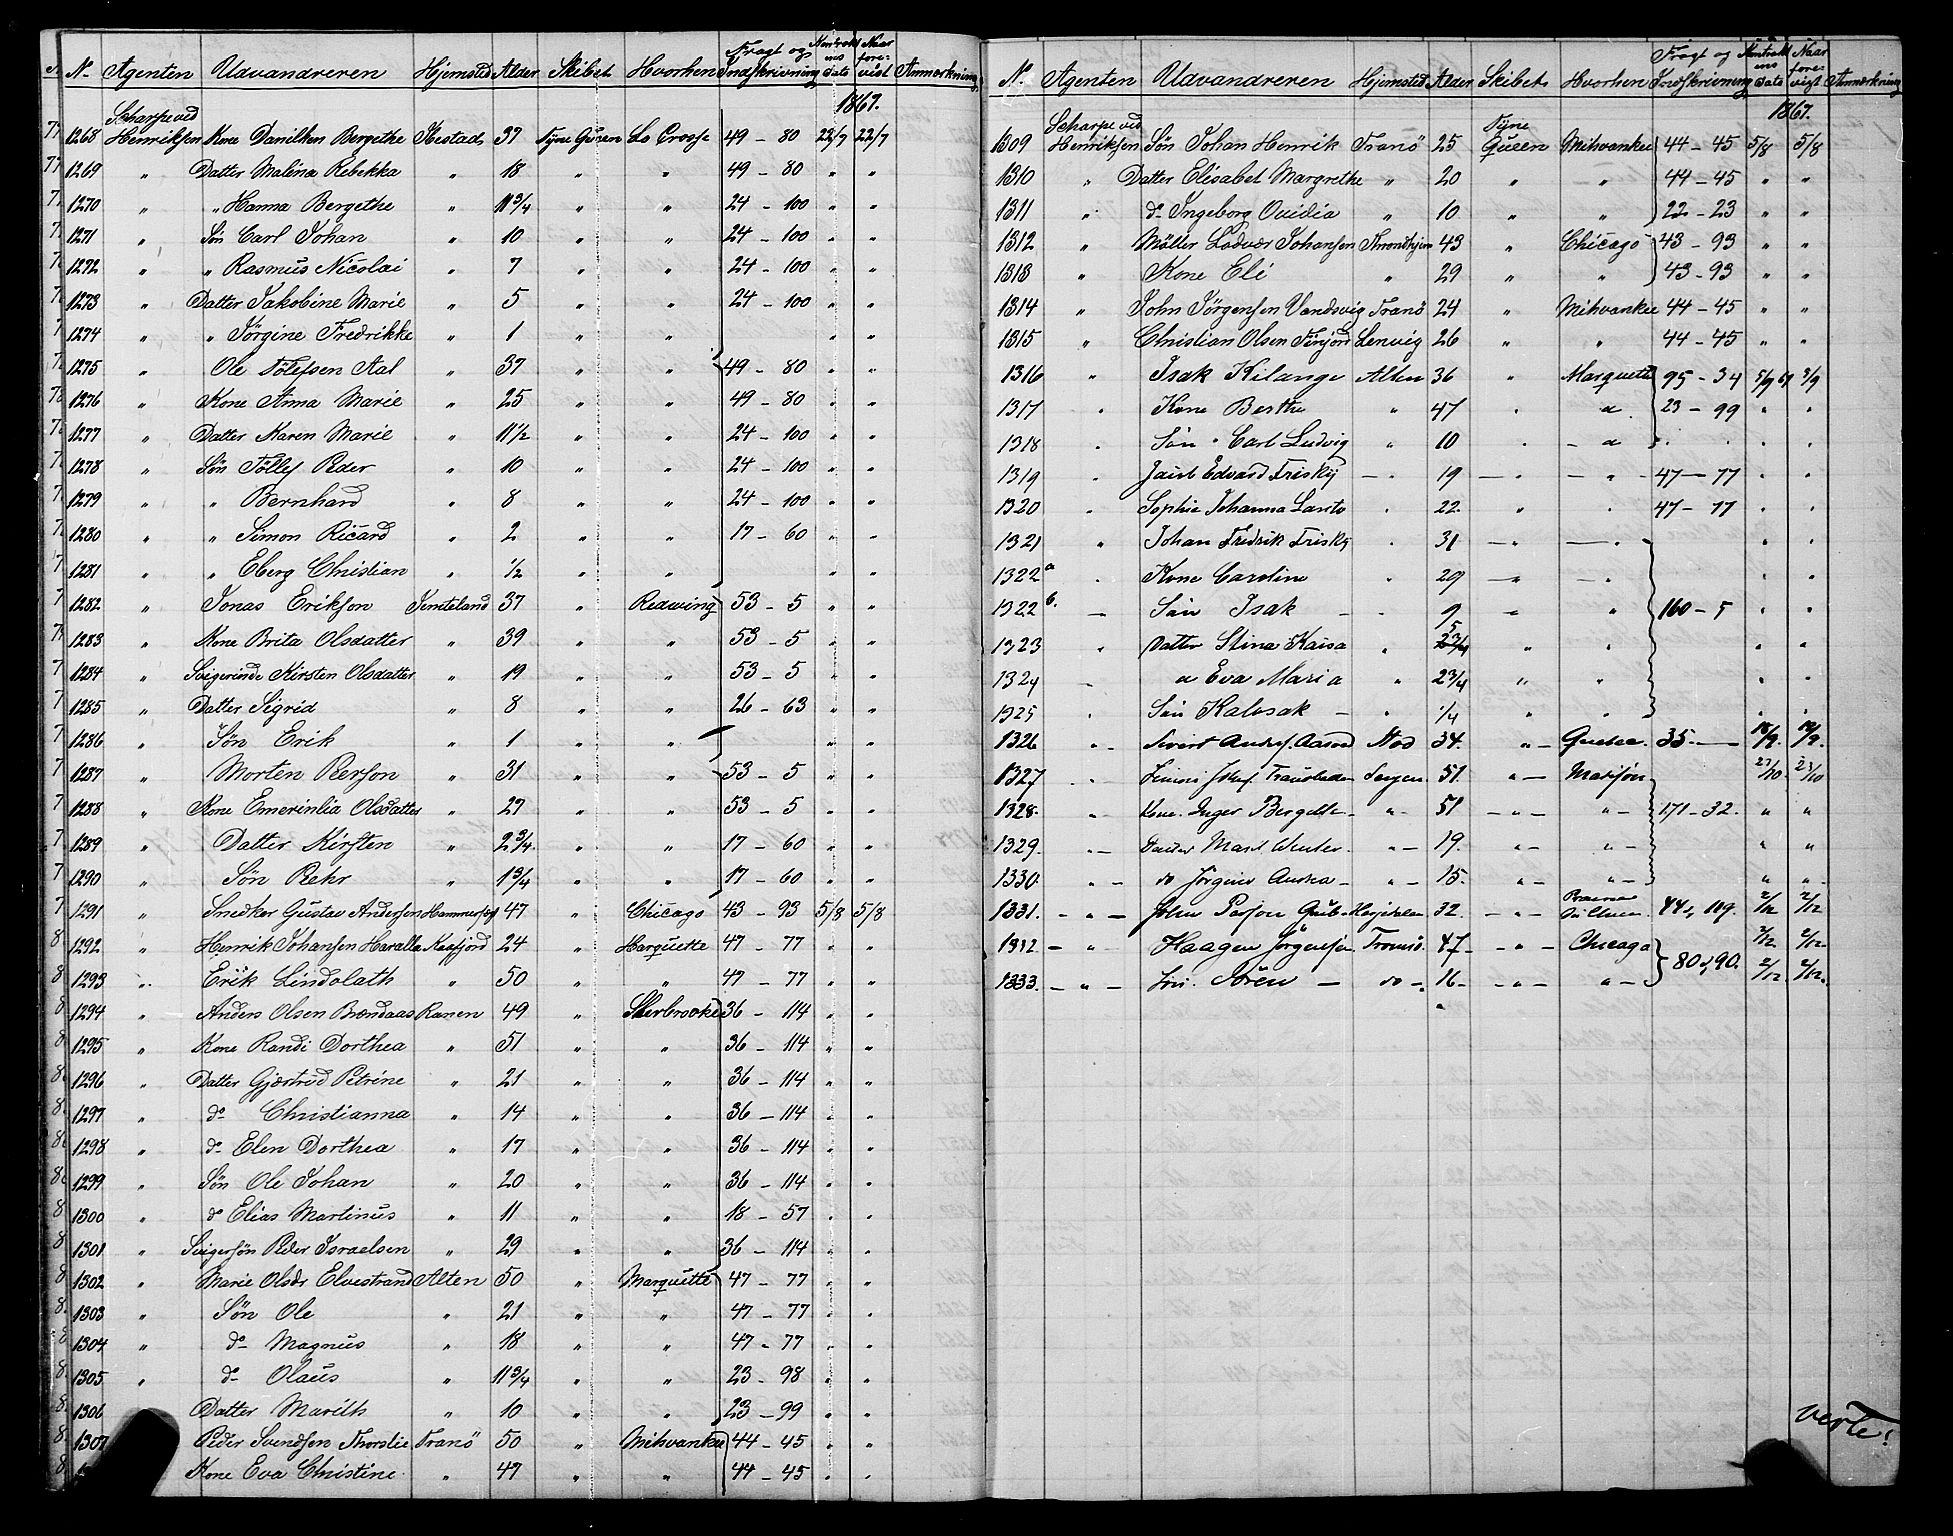 N. Agenten Udvandreren Hjemsted Alder Skibet Hvorhen Fragt og Indskrivning Kontraktens Dato Naar forevist Anmærkning
1867.
Scharpe ved
1268 Henriksen Kone Danilken Bergethe 37 Tyne Queen La Crosse 49 - 80 22/7 22/7
1269 " Datter Malena Rebekka " 18 " " 49 - 80 " "
1270 " " Hanna Bergethe " 11 3/4 " " 24 - 100 " "
1271 " Søn Carl Johan " 10 " " 24 - 100 " "
1272 " " Rasmus Nicolai " 7 " " 24 - 100 " "
1273 " Datter Jakobine Marie " 5 " " 24 - 100 " "
1274 " " Jörgine Fredrikke " 1 " " " "
1275 " Ole Tölefsen Aal " 37 " " 49 - 80 " "
1276 " Kone Anna Marie " 25 " " 49 - 80 " "
1277 " Datter Karen Marie " 11 1/2 " " 24 - 100 " "
1278 " Søn Töllef Peder " 10 " " 24 - 100 " "
1279 " " Bernhard " 8 " " 24 - 100 " "
1280 " " Simon Ricard " 2 " " 17 - 60 " "
1281 " " Eberg Christian " 1/2 " " " "
1282 " Jonas Erikson Jemteland 37 " Redwing 53 - 5 " "
1283 " Kone Brita Olsdatter " 39 " " 53 - 5 " "
1284 " Svigerinde Kirsten Olsdatter " 19 " " 53 - 5 " "
1285 " Datter Sigrid " 8 " " 26 - 63 " "
1286 " Søn Erik " 1 " " " "
1287 " Morten Person " 31 " " 53 - 5 " "
1288 " Kone Emerinlia Olsdatter " 27 " " 53 - 5 " "
1289 " Datter Kirsten " 2 3/4 " " 17 - 60 " "
1290 " Søn Pehr " 1 3/4 " " 17 - 60 " "
1291 " Snedker Gustav Andersen 47 " Chicago 43 - 93 5/8 5/8
1292 " Henrik Johansen Haralla Kaafjord 24 " Marquette 47 - 77 " "
1293 " Erik Lindolath " 50 " " 47 - 77 " "
1294 " Anders Olsen Brændaas Ranen 49 " Sherbrooke 36 - 114 " "
1295 " Kone Randi Dorthea " 51 " " 36 - 114 " "
1296 " Datter Gjertrud Petrine " 21 " " 36 - 114 " "
1297 " do Christianna " 14 " " 36 - 114 " "
1298 " do Elen Dorthea " 17 " " 36 - 114 " "
1299 " Søn Ole Johan " 20 " " 36 - 114 " "
1300 " do Elias Martinus " 11 " " 18 - 57 " "
1301 " Svigersøn Peder Israelsen " 29 " " 36 - 114 " "
1302 " Marie Olsdr Elvestrand Alten 50 " Marquette 47 - 77 " "
1303 " Søn Ole " 21 " " 47 - 77 " "
1304 " do Magnus " 18 " " 47 - 77 " "
1305 " do Olaus " 11 3/4 " " 23 - 98 " "
1306 Datter Marith " 10 " " 23 - 99 " "
1307 Peder Svendsen Thorslie Tranö 50 " Milwankee 44 - 45 " "
Kone Eva Christine " 47 " " 44 - 45 " "
N. Agenten Udvandreren Hjemsted Alder Skibet Hvorhen Fragt og Indskrivning Kontraktens Dato Naar forevist Anmærkning
1867.
Scharpe ved Tyne
1309 Henriksen Søn Johan Henrik Tranö 25 Queen Milwankee 44 - 45 5/8 5/8
1310 " Datter Elisabet Margrethe " 20 " " 44 - 45 " "
1311 " do Ingeborg Ovidia " 10 " " 22 - 23 " "
1312 " Möller Ladvær Johansen Throndhjem 43 " Chicago 43 - 93 " "
1313 " Kone Eli " 29 " " 43 - 93 " "
1314 " John Jörgensen Vandsvig Tranö 24 " Milwankee 44 - 45 " "
1315 " Christian Olsen Finjord Lenvig 26 " " 44 - 45 " "
1316 " Isak Kilange Alten 36 " Marquette 95 - 34 5/9 67 3/9
1317 " Kone Berthe " 47 " " 23 - 99 " "
1318 " Søn " Carl Ludvig " 10 " " " "
1319 " Jacob Edvard Frisky " 19 " " 47 - 77 " "
1320 " Sophie Johanna " 22 " " 47 - 77 " "
1321 " Johan Fredrik Frisky " 31 " " " "
1322 a " Kone Caroline " 29 " " " "
1322 b. Søn Isak " 9 " " 160 - 5 " "
1323 " Datter Stina Kaisa " 5 " " " "
1324 " Eva Maria " 2 3/4 " " " "
1325 Søn " 1/4 " " " "
1326 " Sivert 34. " Quebec. 35. 18/9. 18/9.
1327 " 51. " 23/10 23/10
1328. " Kone Inger " 51 " " 171 - 32. " "
1329. " " 19. " " " "
1330. " do Jörgine Andrea " 15. " " " "
1331. " John 32. " 44, 109. 2/12 2/12
1332 " Haagen Jörgensen Tromsö 47 " Chicago 2/12 2/12
80, 90.
1333. " Sören do 16 " " 2/12. 2/12.
verte!